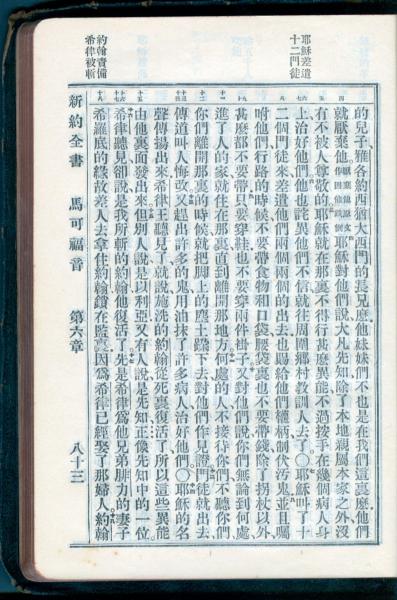 耶穌差遣
十二門徒
四
五
六
七
八
九
十
十一
十二
十三
十四
十五
十六
十七
十八
約翰責備
希律被斬
的兒子雅各約西猶大西門的長兄麼他妹妹們不也是在我們這裏麼他們
就厭棄他厭棄他原文作因他跌倒耶穌對他們說大凡先知除了本地親屬本家之外沒
有不被人尊敬的耶穌就在那裏不得行甚麼異能不過按手在幾個病人身
上治好他們他也詫異他們不信就往周圍鄉村教訓人去了〇耶穌叫了十
二個門徒來差遣他們兩個兩個的出去也賜給他們權柄制伏污鬼並且囑
咐他們行路的時候不要帶食物和口袋腰袋裏也不要帶錢除了拐杖以外
甚麼都不要帶只要穿鞋也不要穿兩件褂子又對他們說你們無論到何處
進了人的家就住在那裏直到離開那地方何處的人不接待你們不聽你們
你們離開那裏的時候就把脚上的塵土跺下去對他們作見證門徒就出去
傳道叫人悔改又趕出許多的鬼用油抹了許多病人治好他們〇耶穌的名
聲傳揚出來希律王聽見了就說施洗的約翰從死裏復活了所以這些異能
由他裏面發出來但別人說是以利亞又有人說是先知正像先知中的一位
希律聽見卻說是我所斬的約翰他復活了先是希律爲他兄弟腓力的妻子
希羅底的緣故差人去拿住約翰鎖在監裏因爲希律已經娶了那婦人約翰
新約全書 馬可福音 第六章 八十三